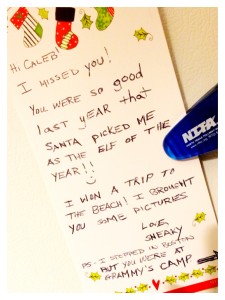 Hi CALEB!
I MISSED YOU!
YOU WERE SO GOOD
last YEAR that
SANTA PICKED ME
AS THE ELF OF THE
YEAR!!
I WON A TRIP TO
THE BEACH! I BROUGHT
YOU SOME PICTURES
LOVE,
SNEAKY
PS- I STOPPED IN BOSTON
BUT YOU WERE AT
GRAMMY'S CAMP